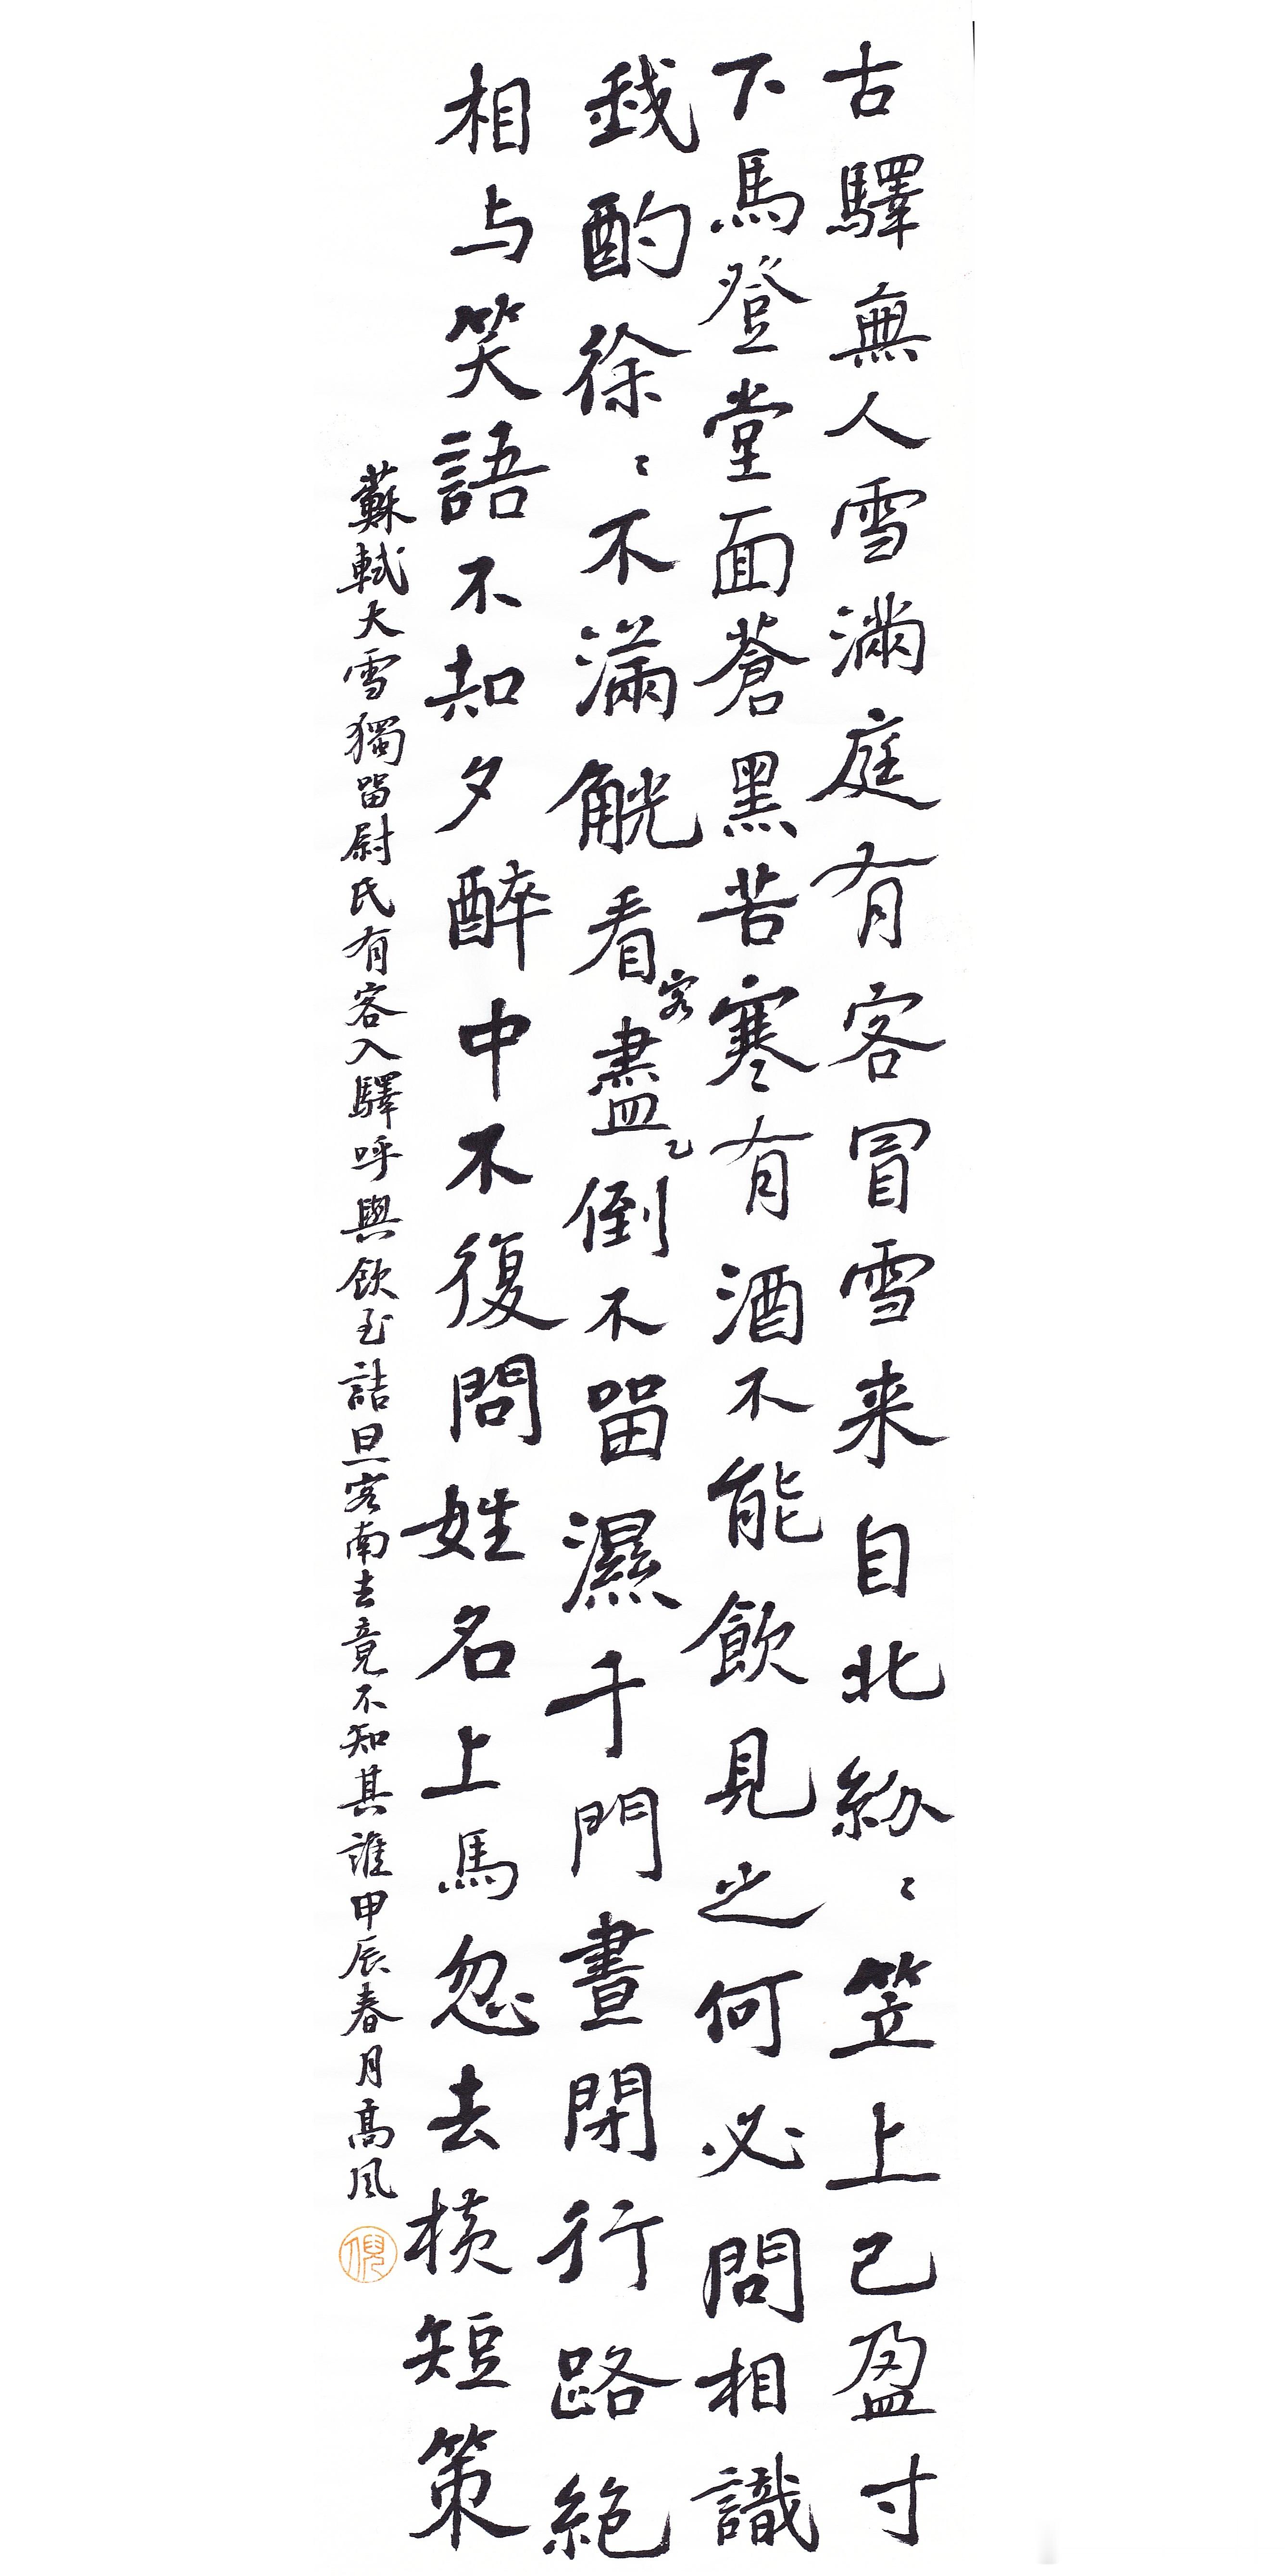 古驛無人雪滿庭有客冒雪来自北紛〻笠上已盈寸
下馬登堂面蒼黑苦寒有酒不能飲見之何必問相識
我酌徐〻不滿觥看客盡乙倒不留濕千門晝閉行路絕
相与笑語不知夕醉中不復問姓名上馬忽去横短策
蘇軾大雪獨留尉氏有客入驛呼與飲至詰旦客南去竟不知其誰甲辰春月高风
倪